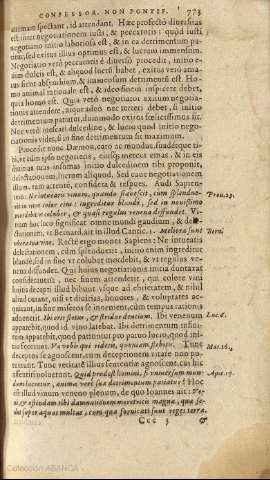 CONFESSOR. NON PONTIF. 773
animam spectant, id attendant. Hæc profectò diuersitas
est inter negotiationem iusti, & peccatoris: quòd iusti
negotiatio initio laboriosa est, & in ea detrimentum pa-
titur, sed exitus illius optimus est, & lucrum immensum.
Negotiatio verò peccatoris è diuerso procedit, initio e-
nim dulcis est, & aliquod lucri habet, exitus verò ama-
rus siue absynthium, & immensum detrimentū est. Ho-
mo animal rationale est, & ideo finem inspicere debet,
quia homo est. Quia verò negotiator exitum negotia-
tionis attendere, atque adeò nec terreri debet, si initio
detrimentum patiatur, dummodo exitus fœlicissimus sit.
Nec verò inescari dulcedine, & lucro quod initio nego-
tiationis videt, si in fine detrimentum sit maximum.
Procedit nunc Dæmon, caro ac mundus, suadétque ti-
bi, vt cum ipso negotieris, eiúsque merces emas, & in eis
initio dulcedinem tibi proponit,
delectationem, lucrum aliquod. Sed caue negotiationem
illam, tam attentè, considera & respues. Audi Sapien-
tem: Ne intuearis vinum, quando flauescit, cum splendue-
rit in vitro color eius: ingreditur blandè, sed in nouissimo Prou.23.
mordebit vt coluber, & quasi regulus venena diffundet. Vi-
num hoc significat omne mundi gaudium, & de-
ctationem, vt Bernard. ait in illud Cantic. 1. Meliora sunt Bern.
vbera tua vino. Rectè ergo monet Sapiens: Ne intuearis
delectationem, cùm splenduerit, initio enim ingreditur
blandè, sed in fine vt coluber mordebit, & vt regulus ve-
nena diffundet. Qui huius negotiationis initia duntaxat
considerauit, nec finem attenderit, qui colore vini
huius decepti illud bibunt vsque ad ebrietatem, & nihil
aliud curant, nisi vt diuitias, honores, & voluptates ac-
quirant, in fine miseros se inuenient, cùm tempus rationis
aduenerit. Ibi erit fletus, & stridor dentium. Ibi venenum Luc.6.
apparebit, quod id vino latebat. Ibi detrimentum infini-
tum apparebit, quod patiuntur pro paruo lucro, quod ini-
tio fecerunt. Væ vobis qui ridetis, quoniam flebitis. Tunc Mat.16.
deceptos se agnoscent, cum deceptionem vitare non po-
terunt. Tunc veritatē illius sententiæ agnoscent, cùm
Quid prodest homini, si vniuersum mun-
dum lucretur, animæ verò suæ detrimentum patiatur? Hoc Apo.17.
est illud vinum veneno plenum, de quo Ioannes ait: Ve-
ni & ostendam tibi damnationem meretricis magnæ, quæ se-
det super aquas multas, cum qua fornicati sunt reges terræ.
Ccc 3 &
Colección ABANCA